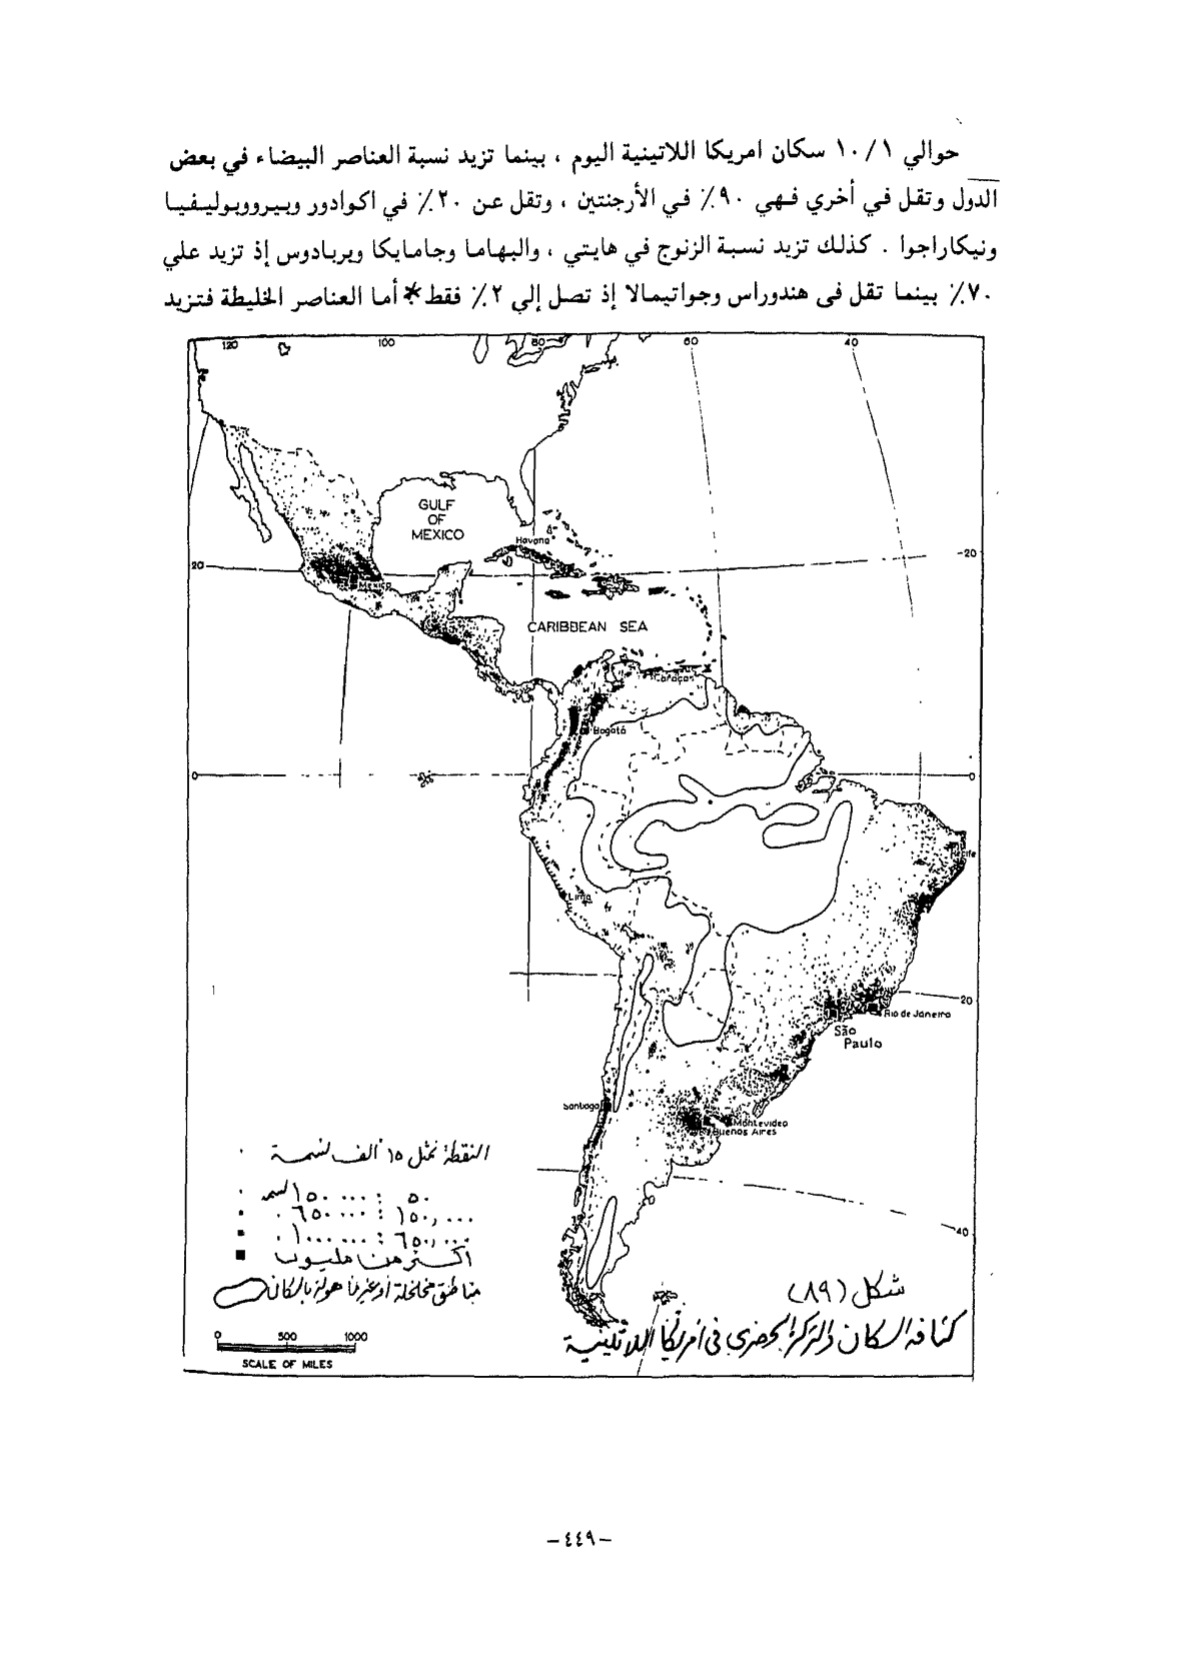 حوالي ١/ ١٠ سكان امريكا اللاتينية اليوم ، بينما تزيد نسبة العناصر البيضاء في بعض
الدول وتقل في أخري فهي ٩٠٪ في الأرجنتين ، وتقل عن ٢٠٪ في اكوادور وبيرووبوليفيا
ونيكاراجوا . كذلك تزيد نسبة الزنوج في هايتي ، والبهاما وجامايكا وبربادوس إذ تزيد علي
٧٠٪ بينما تقل فى هندوراس وجواتيمالا إذ تصل إلي ٢٪ فقط * أما العناصر الخليطة فتزيد
120 100 80 60 40
GULF
OF
MEXICO
Havana
20 -20
Mexico
CARIBBEAN SEA
Caracas
Bogotá
0 0
Recife
Lima
20
Rio de Janeiro
São
Paulo
Santiago
Montevideo
Buenos Aires
النقطة تمثل ١٥ ألف نسمة
٥٠ : ١٥٠٠٠٠ نسمة
١٥٠,٠٠٠ : ٦٥٠٠٠٠
٦٥٠,٠٠٠ : ١٠٠٠٠٠٠
أكثر من مليون
مناطق مخلخلة أو غير مأهولة بالسكان
40
0 500 1000
SCALE OF MILES
شكل (٨٩)
كثافة السكان والتركز الحضرى فى أمريكا اللاتينية
-٤٤٩-